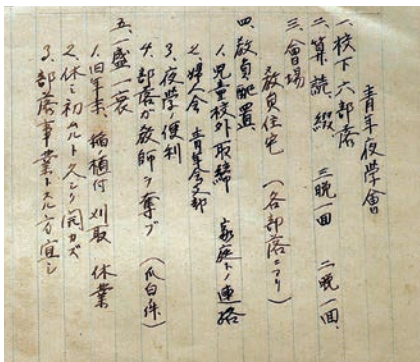 青年夜學會
一、校下六部落
二、算、読、綴 三晩一回 二晩一回、
三、會場
教員住宅 (各部落ニアリ)
四、教員配置
1、児童校外取締 家庭トノ連絡
2、婦人会 青年会支部
3、夜學ノ便利
4、部落ガ教師ヲ奪ブ (瓜白珠)
五、盛一衰
1、旧年末、稲ノ植付 刈取 休業
2、休ミ初ムルト久シク開カズ
3、部落事業トスル方宜シ